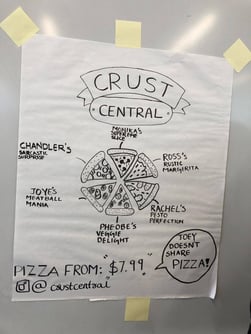 CRUST
CENTRAL
MONIKA'S
SUPREME
SLICE
CHANDLER'S
SARCASTIC
SURPRISE
ROSS'S
RUSTIC
MARGERITA
JOYE'S
MEATBALL
MANIA
RACHEL'S
PESTO
PERFECTION
PHEOBE'S
VEGGIE
DELIGHT
JOEY
DOESNT
SHARE
PIZZA!
PIZZA FROM: $7.99
@crustcentral